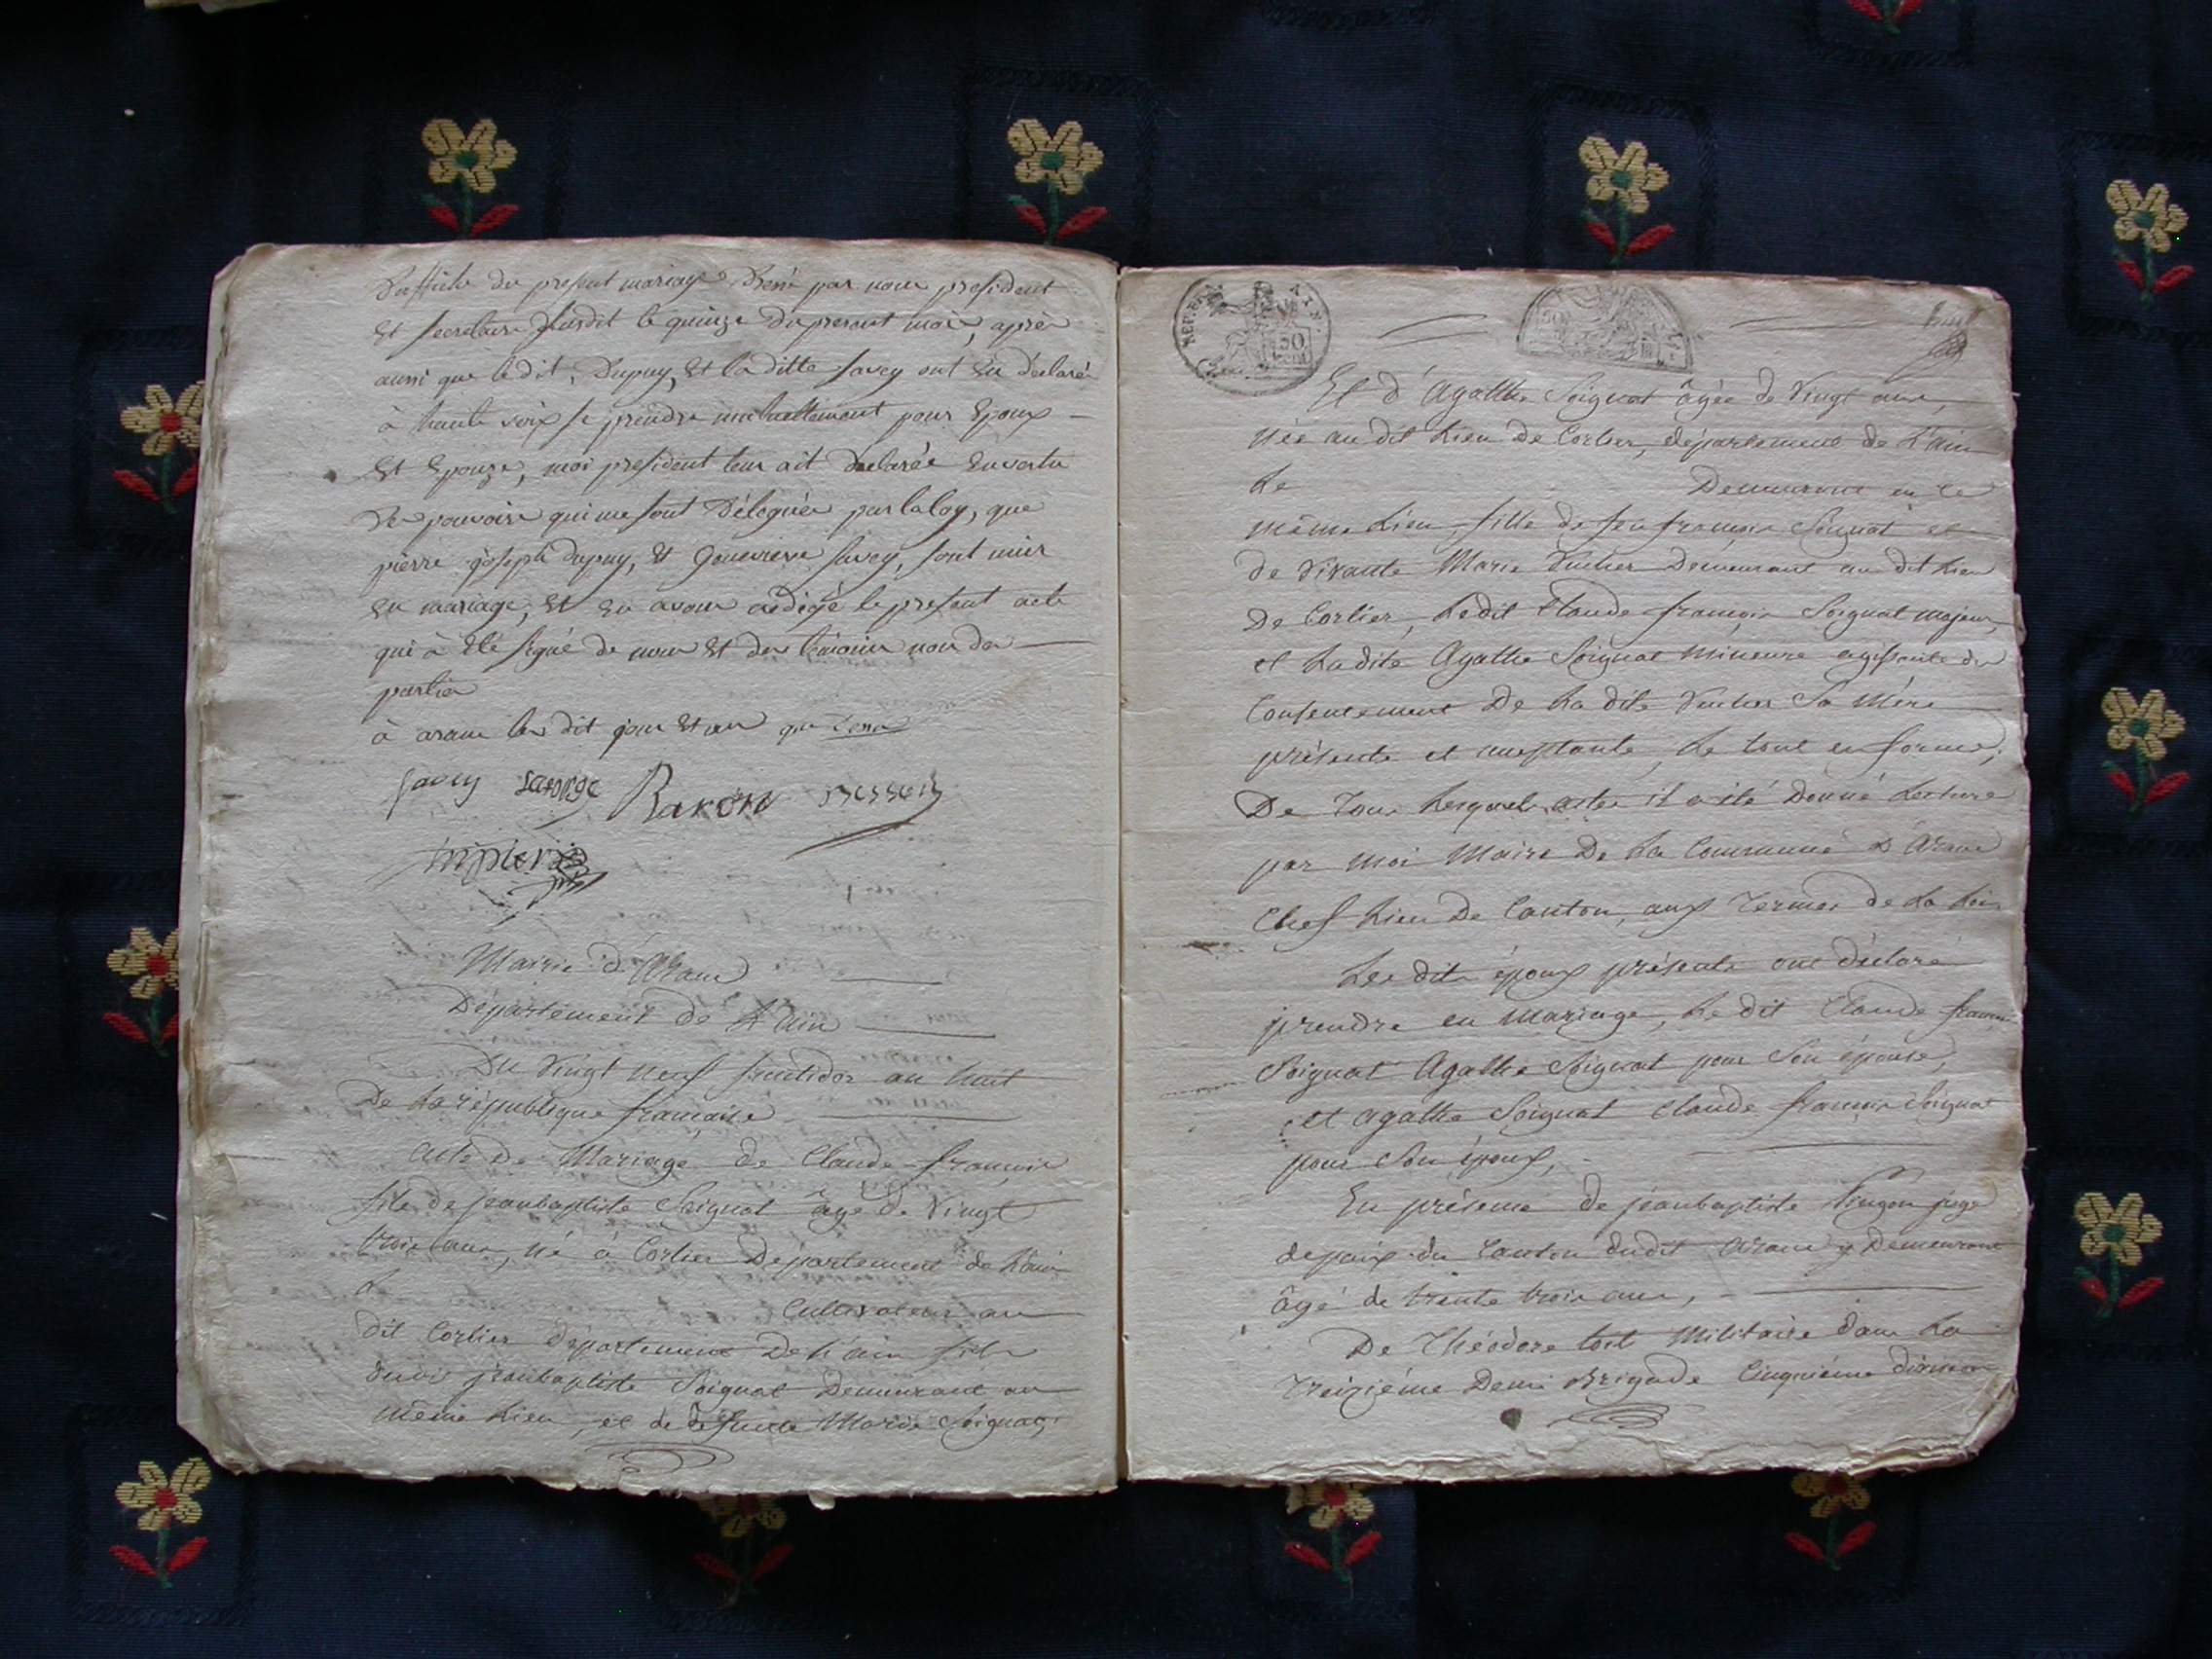 du present mariage par nous president
Et secretaire susdit le quinze du presant mois, après
aussi que ledit, Dupuy, Et la ditte Savey ont Eu déclaré
à haute voix se prendre mutuellement pour Epoux
Et Epouze, moi president leur ait declarée En vertu
des pouvoirs qui me sont Délégués par la loy, que
pierre joseph dupuy, Et Genevieve Savey, sont unis
En mariage, Et En avons redigé le present acte
qui à Eté signé de nous Et des témoins non des
parties
à aranc les dit jour Et an que dessus
Savey Savarge Baron
Mairie d'Aranc
Département de L'Ain
Du Vingt neuf fructidor an huit
De La république française
Acte De Mariage de Claude françois
fils de jeanbaptiste Soignat âgé de Vingt
trois ans, né à Corlier Département de L'ain
Le Cultivateur au
dit Corlier département De L'ain fils
dudit jeanbaptiste Soignat Demeurant au
même Lieu, et de défunte Marie Soignat,
REP. FRA
50
cent
50
Et d'Agathe Soignat âgée de Vingt ans,
née au dit Lieu de Corlier, département de L'ain
Le Demeurant en ce
même Lieu, fille de feu françois Soignat et
de vivante Marie Vucher Demeurant au dit Lieu
De Corlier, Ledit Claude françois Soignat majeur,
et La dite Agathe Soignat mineure agissante du
Consentement De La dite Vucher Sa Mère
présente et acceptante, Le tout en forme;
De Tous Lesquels actes il a été Donné Lecture
par Moi Maire De La Commune D'Aranc
Chef Lieu De Canton, aux Termes de La Loi
Les dits époux présents ont déclaré
prendre en Mariage, Le dit Claude françois
Soignat Agathe Soignat pour Son épouse,
et agathe Soignat Claude françois Soignat
pour Son époux,
En présence de jeanbaptiste juge
de paix du Canton dudit Aranc y Demeurant
âgé de trente trois ans,
De Théodore Militaire dans La
Treizième Demi Brigade Cinquième division